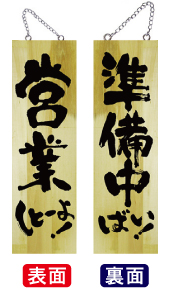 営業
しとーよ!
準備中
ばい!
表面
裏面